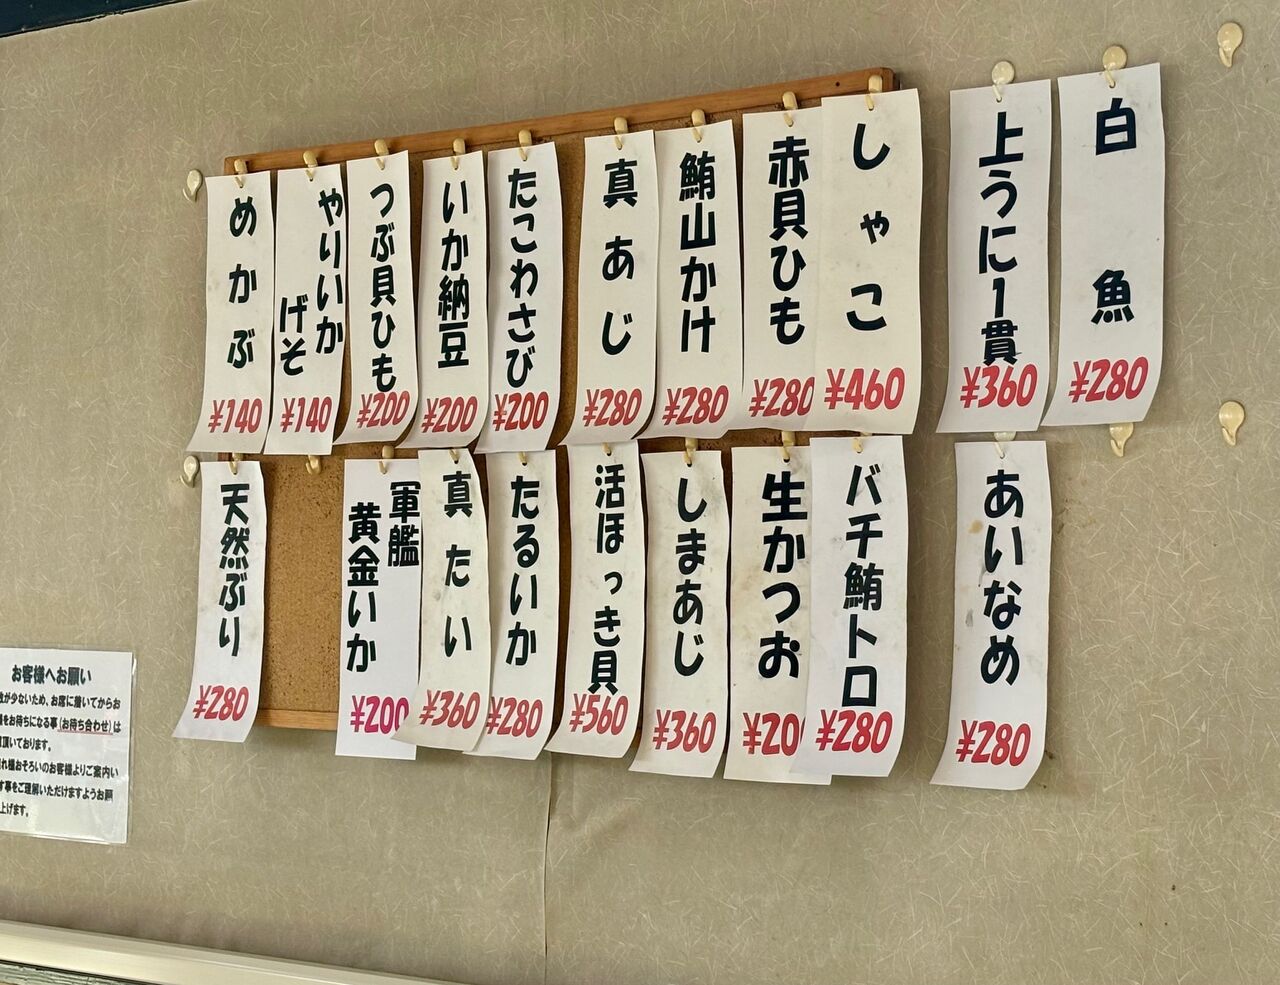 白魚
¥280
上うに1貫
¥360
しゃこ
¥460
赤貝ひも
¥280
鮪山かけ
¥280
真あじ
¥280
たこわさび
¥200
いか納豆
¥200
つぶ貝ひも
¥200
やりいか
げそ
¥140
めかぶ
¥140
あいなめ
¥280
バチ鮪トロ
¥280
生かつお
¥200
しまあじ
¥360
活ほっき貝
¥560
たるいか
¥280
真たい
¥360
軍艦
黄金いか
¥200
天然ぶり
¥280
お客様へお願い
が少ないため、お席に着いてからお
をお待ちになる事(お待ち合わせ)は
頂いております。
れ様おそろいのお客様よりご案内い
す事をご理解いただけますようお願
上げます。